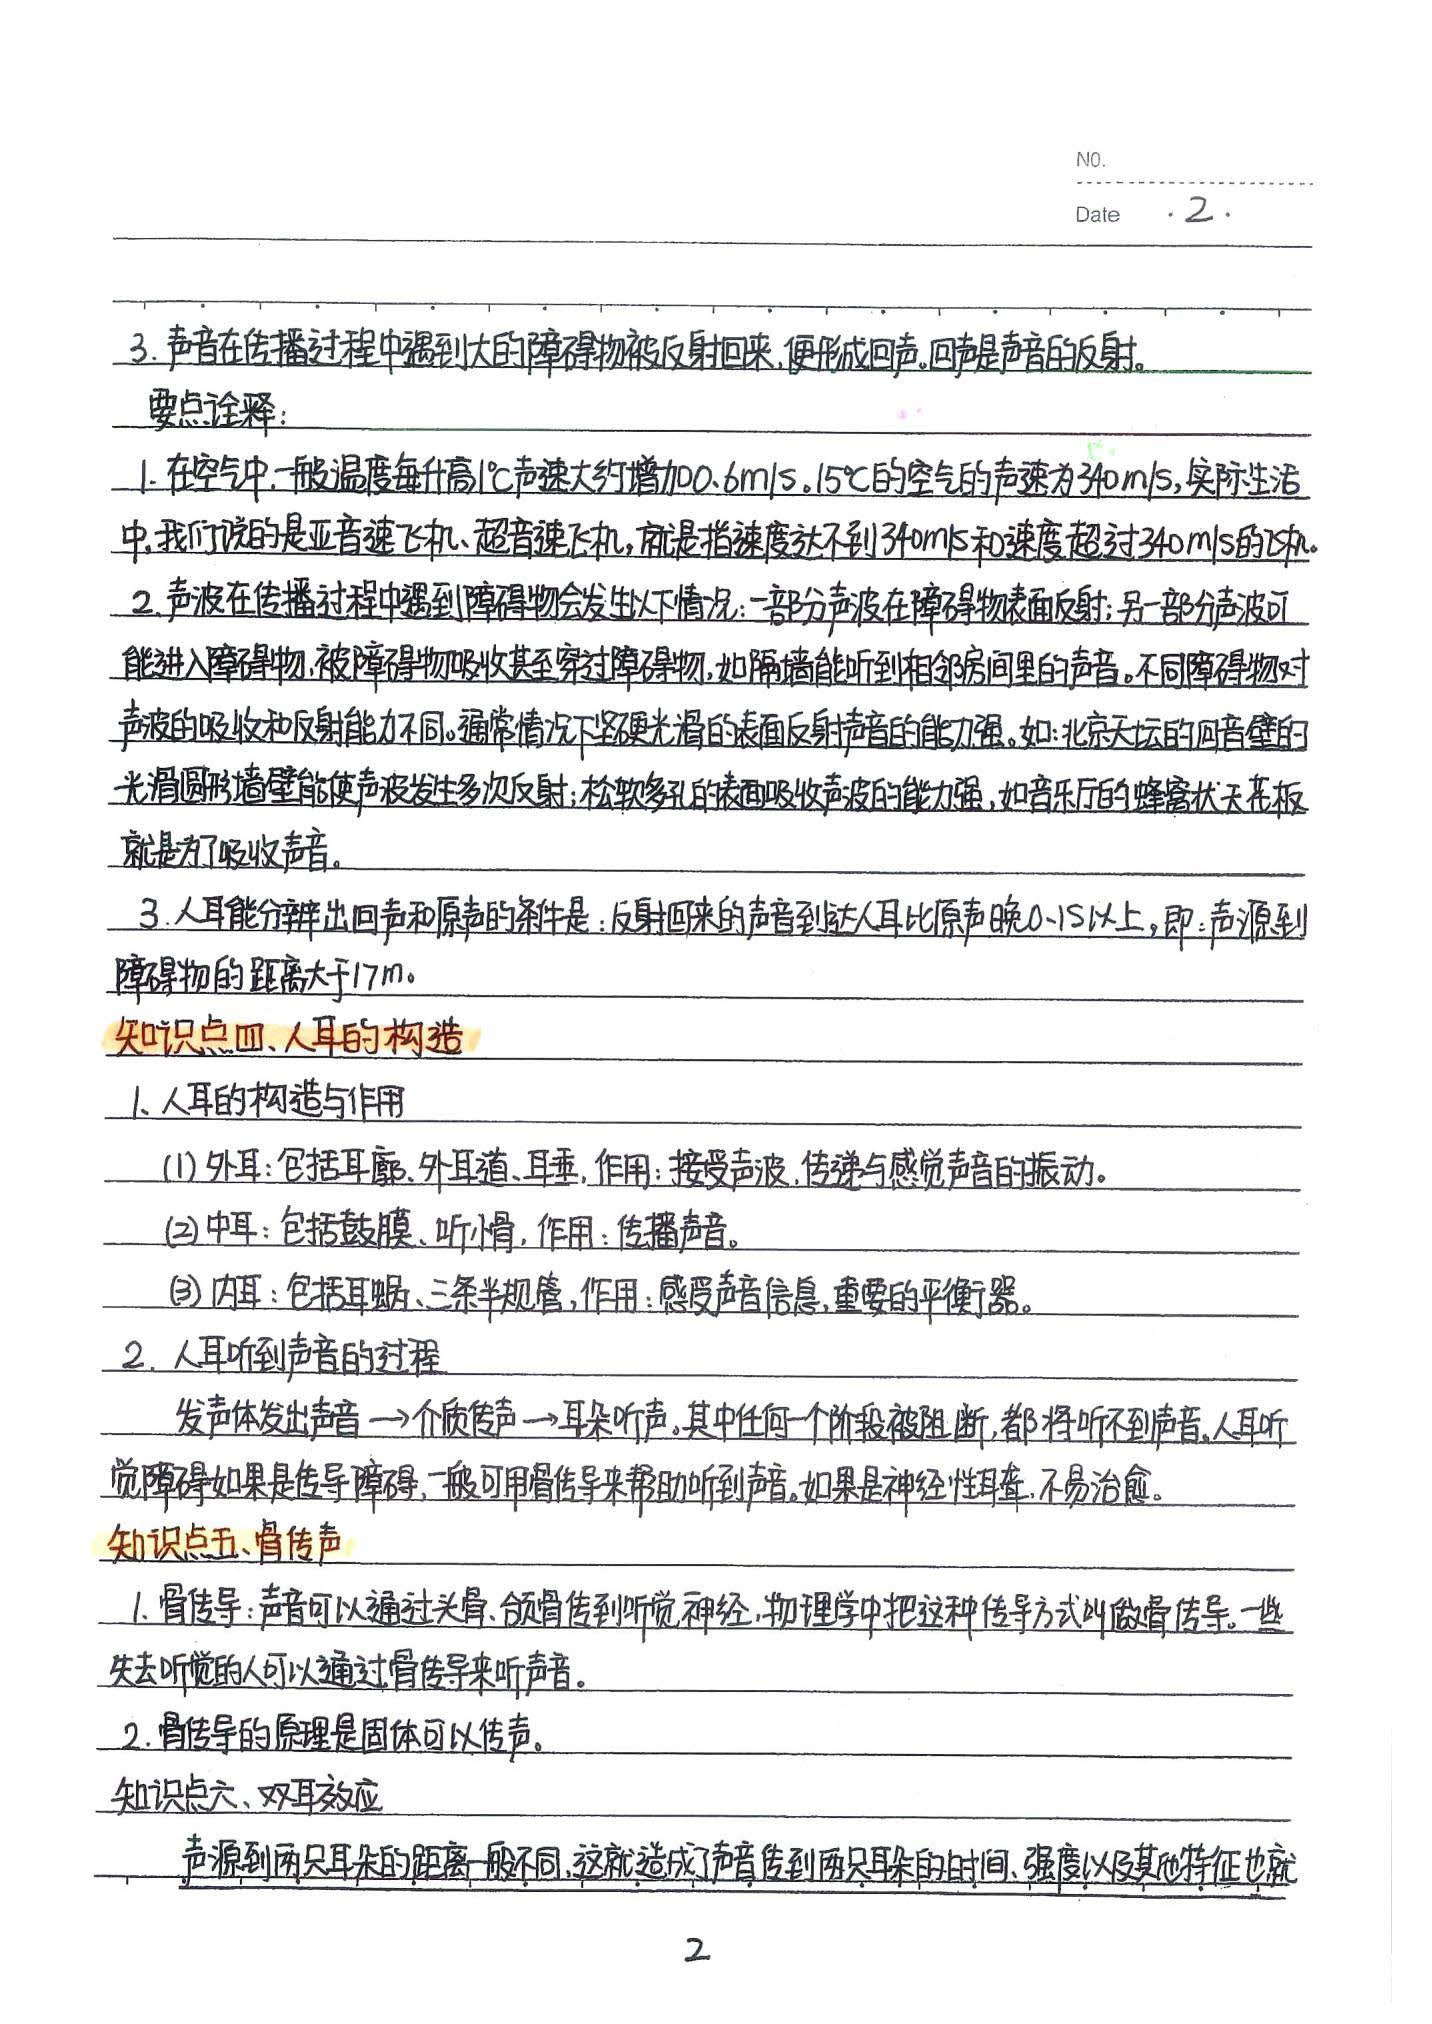 NO.
Date ·2·
3. 声音在传播过程中遇到大的障碍物被反射回来，便形成回声。回声是声音的反射。
要点诠释：
1. 在空气中，一般温度每升高1℃声速大约增加0.6m/s。15℃的空气的声速为340m/s，实际生活
中，我们说的是亚音速飞机、超音速飞机，就是指速度达不到340m/s和速度超过340m/s的飞机。
2. 声波在传播过程中遇到障碍物会发生以下情况：一部分声波在障碍物表面反射；另一部分声波可
能进入障碍物，被障碍物吸收甚至穿过障碍物，如隔墙能听到相邻房间里的声音。不同障碍物对
声波的吸收和反射能力不同。通常情况下坚硬光滑的表面反射声音的能力强。如：北京天坛的回音壁的
光滑圆形墙壁能使声波发生多次反射；松软多孔的表面吸收声波的能力强，如音乐厅的蜂窝状天花板
就是为了吸收声音。
3. 人耳能分辨出回声和原声的条件是：反射回来的声音到达人耳比原声晚0.1S以上，即：声源到
障碍物的距离大于17m。
知识点四、人耳的构造
1、人耳的构造与作用
(1) 外耳：包括耳廓、外耳道、耳垂，作用：接受声波，传递与感觉声音的振动。
(2) 中耳：包括鼓膜、听小骨，作用：传播声音。
(3) 内耳：包括耳蜗、三条半规管，作用：感受声音信息，重要的平衡器。
2. 人耳听到声音的过程
发声体发出声音→介质传声→耳朵听声。其中任何一个阶段被阻断，都将听不到声音。人耳听
觉障碍如果是传导障碍，一般可用骨传导来帮助听到声音。如果是神经性耳聋，不易治愈。
知识点五、骨传声
1. 骨传导：声音可以通过头骨、颌骨传到听觉神经，物理学中把这种传导方式叫做骨传导。一些
失去听觉的人可以通过骨传导来听声音。
2. 骨传导的原理是固体可以传声。
知识点六、双耳效应
声源到两只耳朵的距离一般不同，这就造成了声音传到两只耳朵的时间、强度以及其他特征也就
2